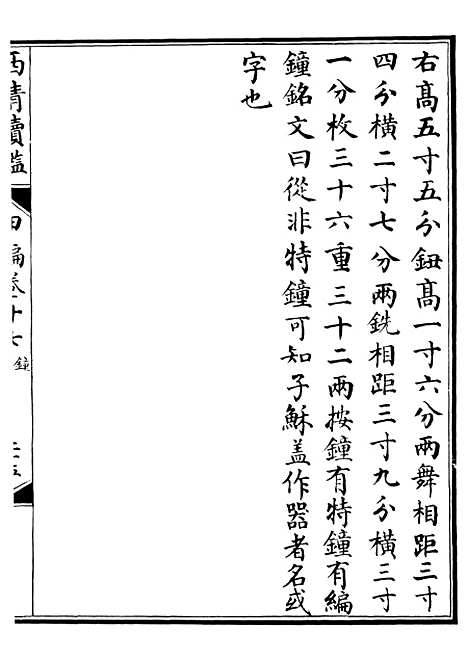 右髙五寸五分鈕髙一寸六分兩舞相距三寸
四分橫二寸七分兩銑相距三寸九分橫三寸
一分枚三十六重三十二兩按鐘有特鐘有編
鐘銘文曰從非特鐘可知子穌盖作器者名或
字也
西清續鑑
甲編卷十七
鐘